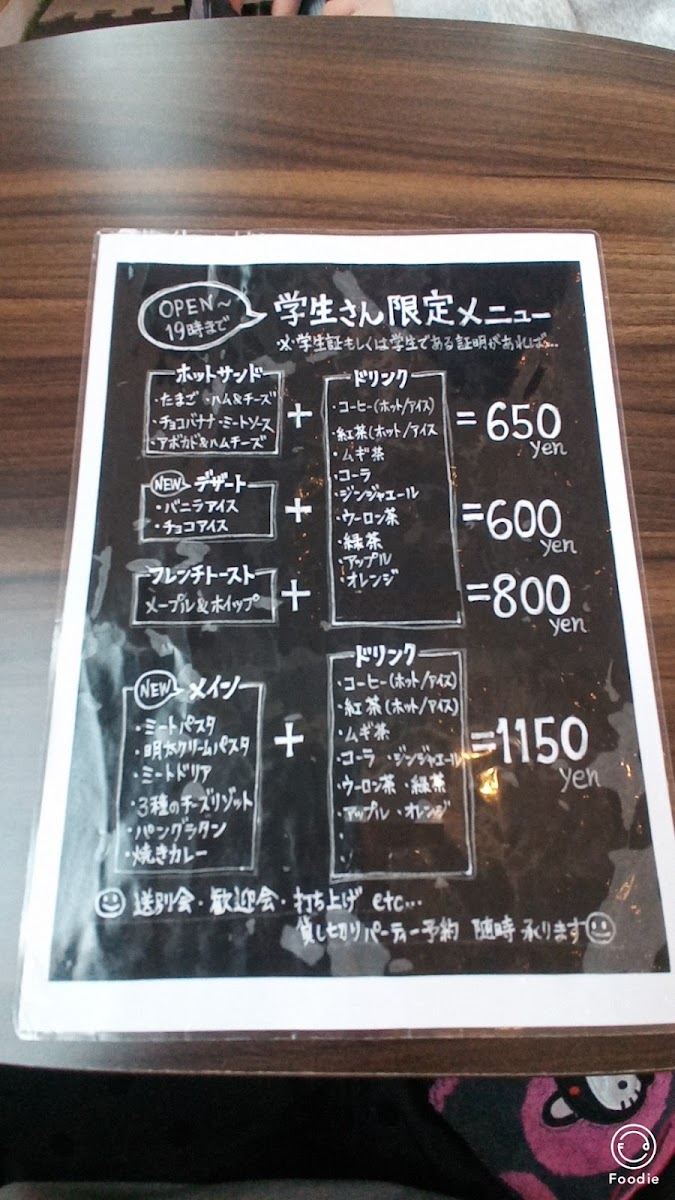 OPEN〜
19時まで
学生さん限定メニュー
※学生証もしくは学生である証明があれば...
ホットサンド
・たまご ・ハム&チーズ
・チョコバナナ ・ミートソース
・アボカド&ハムチーズ
+
ドリンク
・コーヒー(ホット/アイス)
・紅茶(ホット/アイス
・ムギ茶
・コーラ
・ジンジャエール
・ウーロン茶
・緑茶
・アップル
・オレンジ
=650
yen
NEW デザート
・バニラアイス
・チョコアイス
+
=600
yen
フレンチトースト
メープル&ホイップ
+
=800
yen
NEW メイン
・ミートパスタ
・明太クリームパスタ
・ミートドリア
・3種のチーズリゾット
・パングラタン
・焼きカレー
+
ドリンク
・コーヒー(ホット/アイス)
・紅茶(ホット/アイス)
・ムギ茶
・コーラ ・ジンジャエール
・ウーロン茶 ・緑茶
・アップル ・オレンジ
=1150
yen
送別会・歓迎会・打ち上げ etc...
貸し切りパーティー予約 随時 承ります
Foodie